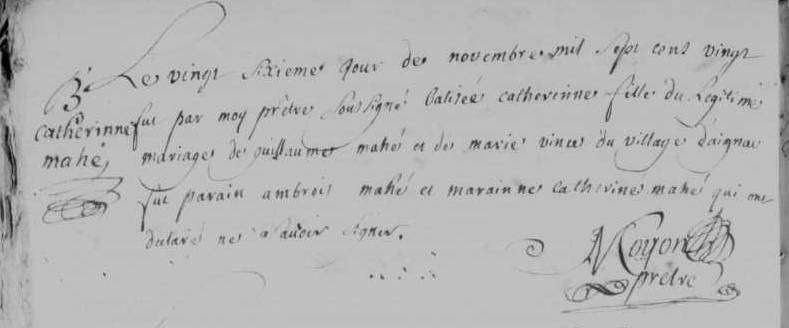 Le vingt sixieme jour de novembre mil sept cens vingt
B
Catherinne
mahé
fut par moy prêtre soussigné batiseé catherinne fille du Legitime
mariage de guillaume mahé et de marie vince du village d'aignac
fut parain ambrois mahé et marainne Catherine mahé qui ont
declaré ne savoir signer.
Moyon
prêtre